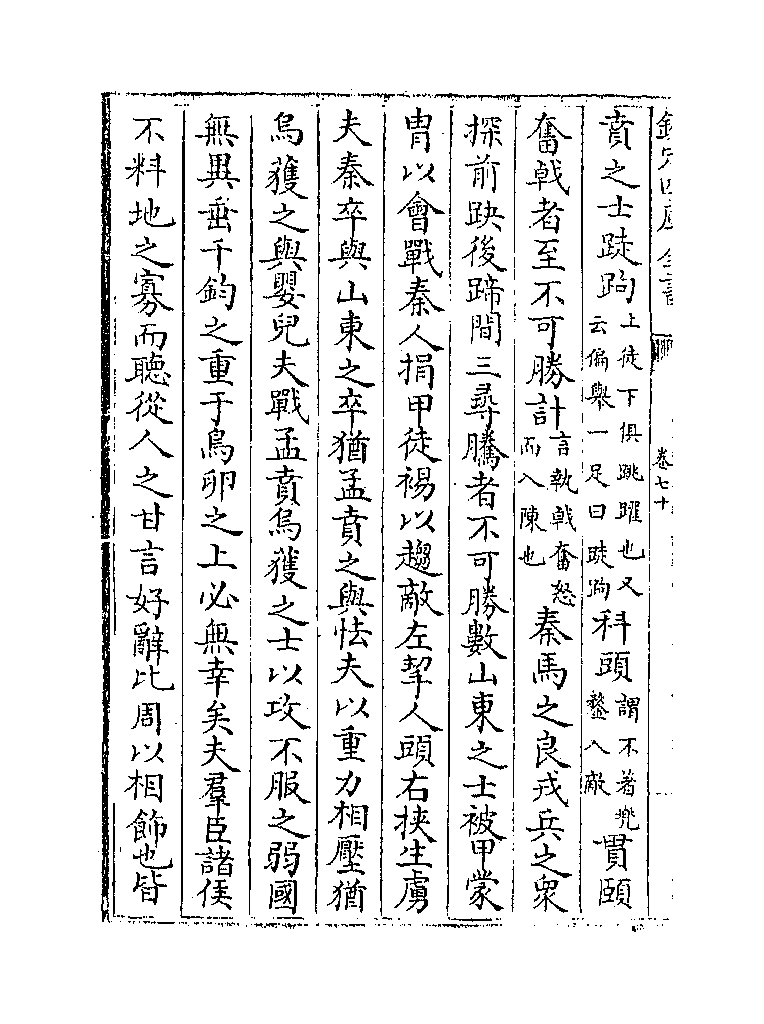 欽定四庫全書 卷七十
賁之士跿跔上徒下俱跳躍也又云偏舉一足曰跿跔科頭謂不著兜鍪入敵貫頤
奮戟者至不可勝計言執戟奮怒而入陳也秦馬之良戎兵之衆
探前趹後蹄間三尋騰者不可勝數山東之士被甲蒙
胄以會戰秦人捐甲徒裼以趨敵左挈人頭右挾生虜
夫秦卒與山東之卒猶孟賁之與怯夫以重力相壓猶
烏獲之與嬰兒夫戰孟賁烏獲之士以攻不服之弱國
無異垂千鈞之重于鳥卵之上必無幸矣夫羣臣諸侯
不料地之寡而聽從人之甘言好辭比周以相飾也皆